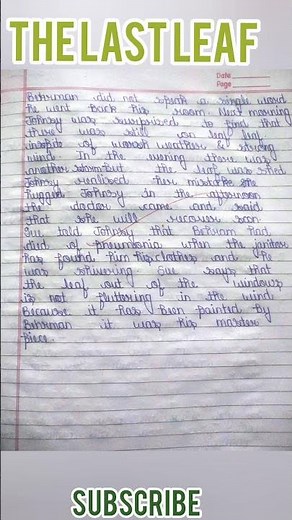 THE LAST LEAF
Date
Page
Behrman did not speak a single word
He went back his room. Next morning
Johnsy was surprised to find that
there was still on leaf leaf
inspite of worsh weather & strong
wind. In the evening there was
another storm but the leaf was still
Johnsy realised her mistake she
hugged Johnsy in the afternoon
the doctor came and said
that she will recover soon
Sue told Johnsy that Behram had
died of pneumonia when the janiter
has found him his clothes and he
was shivering Sue says that
the leaf out of the windows
is not fluttering in the wind
Because it has been painted by
Behrman it was his master
piece.
SUBSCRIBE